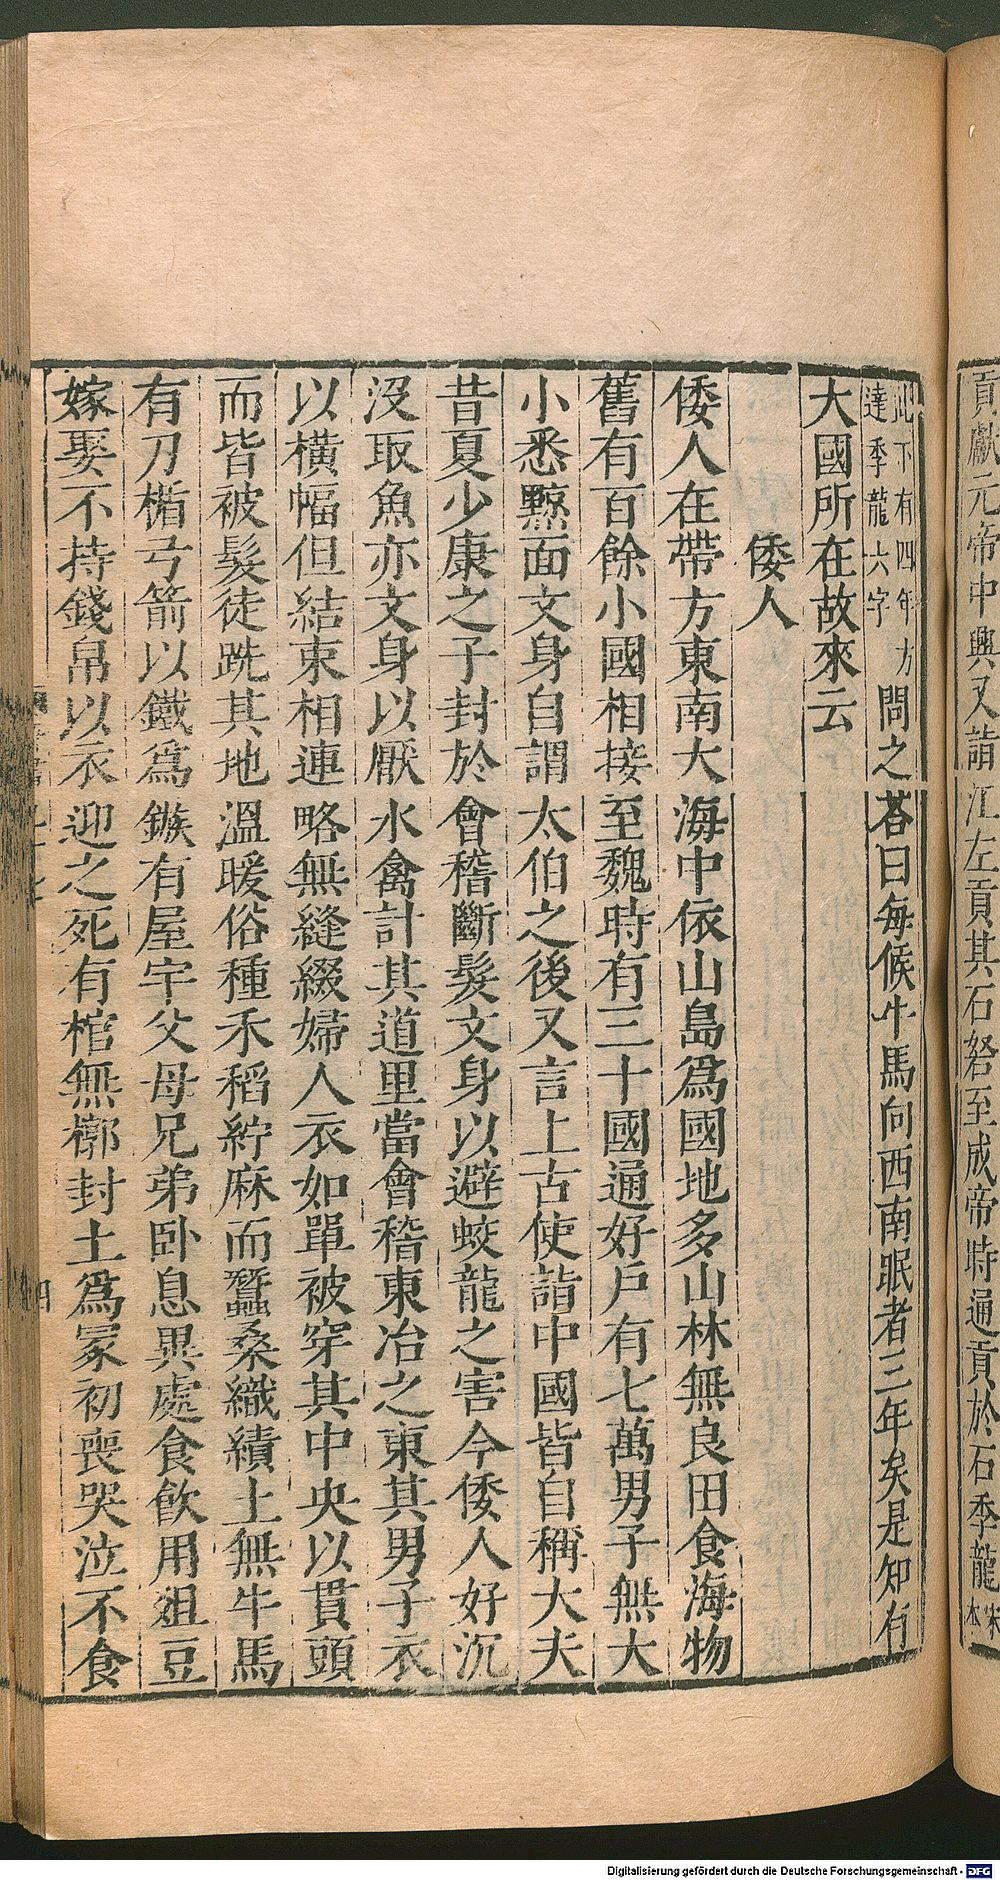 貢獻元帝中興又詣江左貢其石砮至成帝時通貢於石季龍宋本
此下有四年方
達季龍六字
問之荅曰每候牛馬向西南眠者三年矣是知有
大國所在故來云
倭人
倭人在帶方東南大海中依山島爲國地多山林無良田食海物
舊有百餘小國相接至魏時有三十國通好戶有七萬男子無大
小悉黥面文身自謂太伯之後又言上古使詣中國皆自稱大夫
昔夏少康之子封於會稽斷髮文身以避蛟龍之害今倭人好沉
沒取魚亦文身以厭水禽計其道里當會稽東冶之東其男子衣
以橫幅但結束相連略無縫綴婦人衣如單被穿其中央以貫頭
而皆被髮徒跣其地溫暖俗種禾稻紵麻而蠶桑織績土無牛馬
有刀楯弓箭以鐵爲鏃有屋宇父母兄弟臥息異處食飮用俎豆
嫁娶不持錢帛以衣迎之死有棺無槨封土爲冢初喪哭泣不食
四
Digitalisierung gefördert durch die Deutsche Forschungsgemeinschaft - DFG